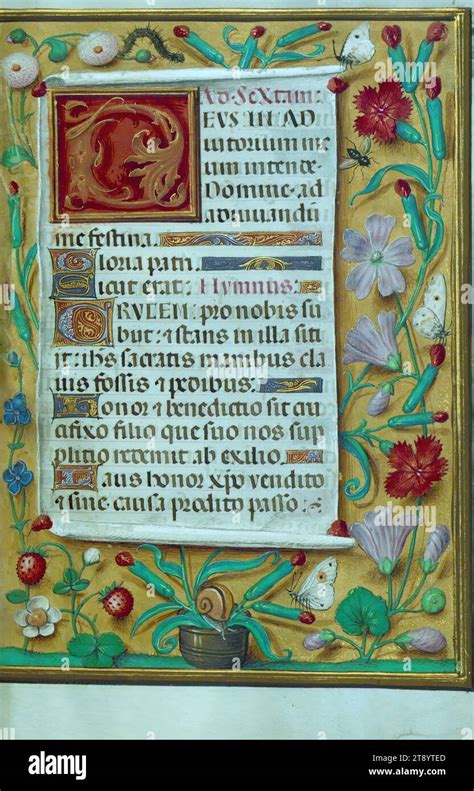 Ad · Sextam:
EUS IN AD
iutorium me
um intende ·
Domine · ad
adiuuandũ
me festina ·
Gloria patri ·
Sicut erat : Hymnus :
CRUCEM : pro nobis su
biit : & stans in illa siti
it : ihs sacratis manibus cla
uis fossis & pedibus :
Honor & benedictio sit cru
cifixo filio que suo nos sup
plitio redemit ab exilio ·
Laus honor xpo vendito
& sine causa prodito passo :
alamy
Image ID: 2T8YTED
www.alamy.com